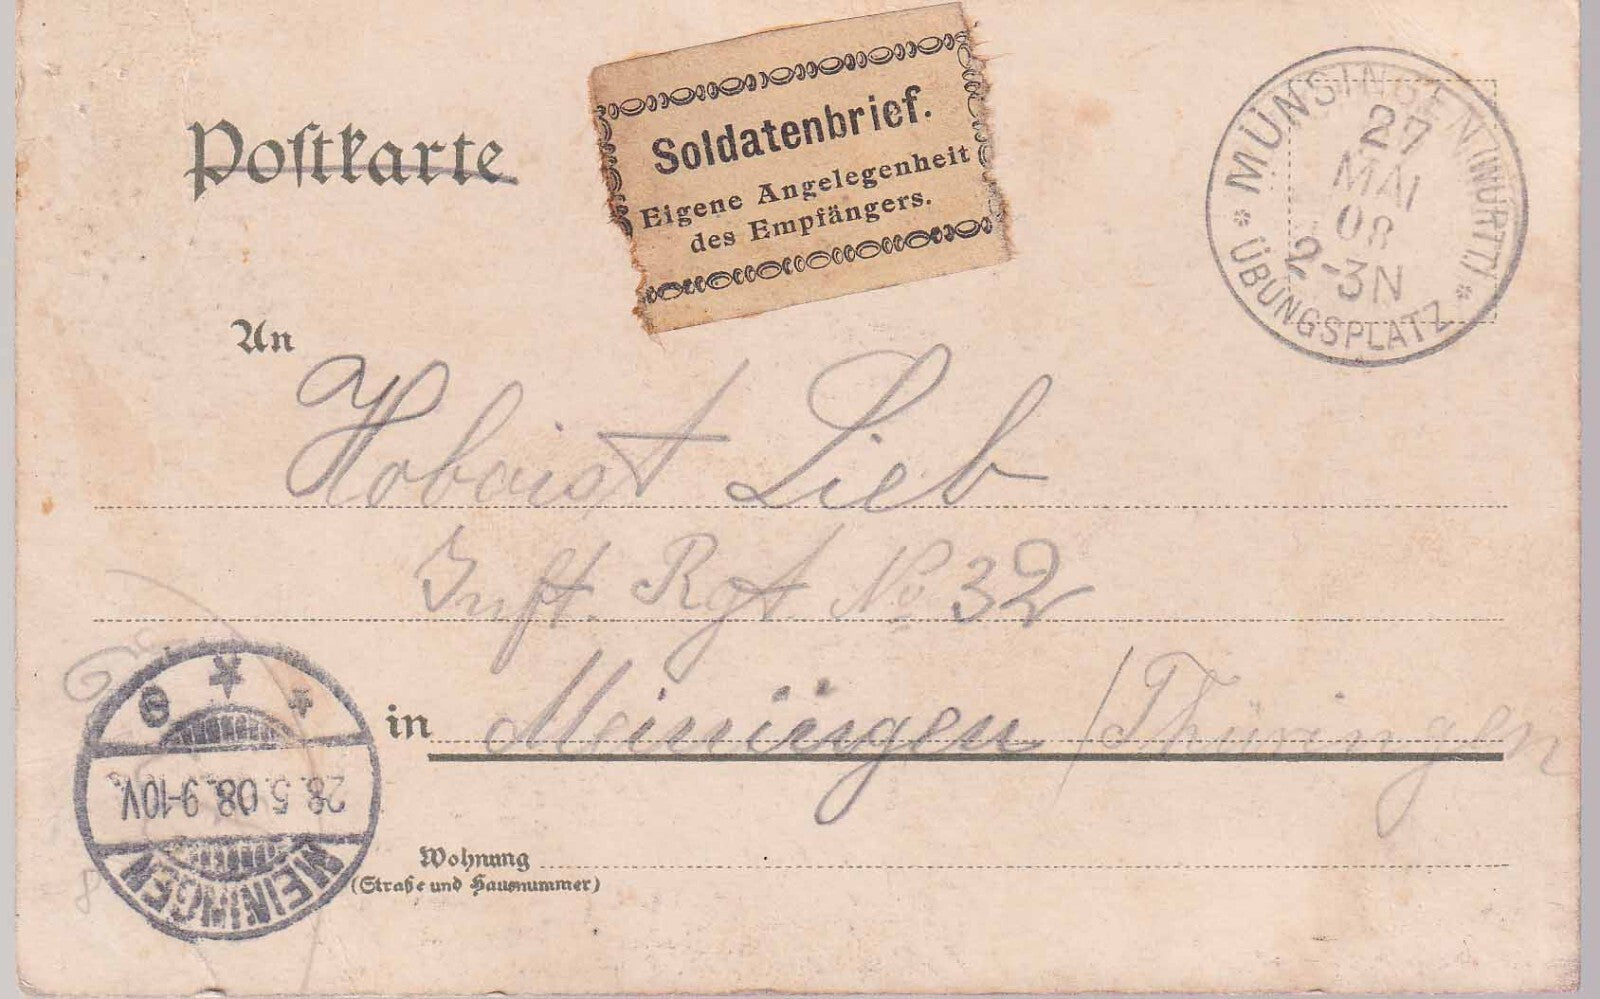 Postkarte
Soldatenbrief.
Eigene Angelegenheit
des Empfängers.
* MÜNSINGEN (WÜRTT.) *
27
MAI
08
2-3N
ÜBUNGSPLATZ
An
Hoboist Lieb
Inft. Rgt No 32
in Meiningen / Thüringen
28.5.08.9-10V.
MEININGEN
Wohnung
(Straße und Hausnummer)